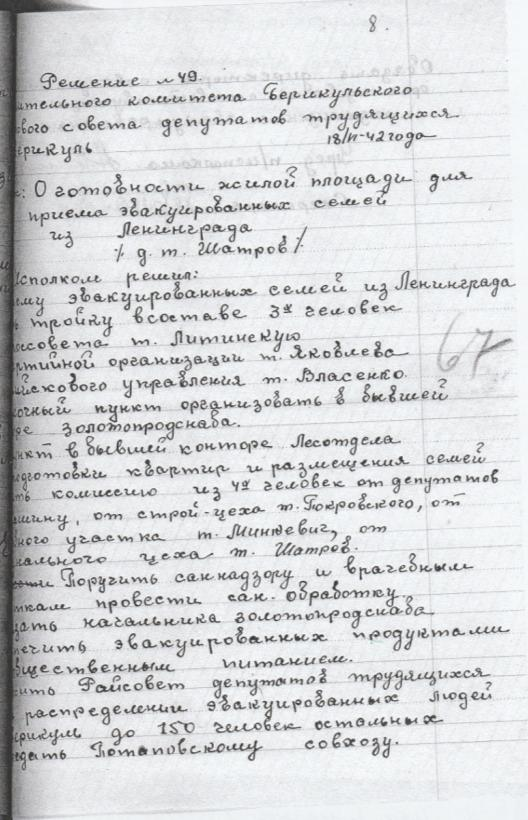 8.
Решение №49.
ительного комитета Берикульского
ового совета депутатов трудящихся
ерикуль 18/IV-42 года
: О готовности жилой площади для
приема эвакуированных семей
из Ленинграда
/. д. т. Шатров /.
сполком решил:
ему эвакуированных семей из Ленинграда
тройку в составе 3х человек
совета т. Литинскую
ртийной организации т. Яковлева
йскового управления т. Власенко.
очный пункт организовать в бывшей
ре золотопродснаба.
нкт в бывшей конторе Лесотдела
одготовки квартир и размещения семей
ть комиссию из 4х человек от депутатов
шину, от строй-цеха т. Покровского, от
ного участка т. Минкевич, от
нального цеха т. Шатров.
Поручить саннадзору и врачебным
ткам провести сан. обработку.
зать начальника золотопродснаба
печить эвакуированных продуктами
бщественным питанием.
ить Райсовет депутатов трудящихся
распределении эвакуированных людей
ерикуль до 150 человек остальных
едать Потаповскому совхозу.
67